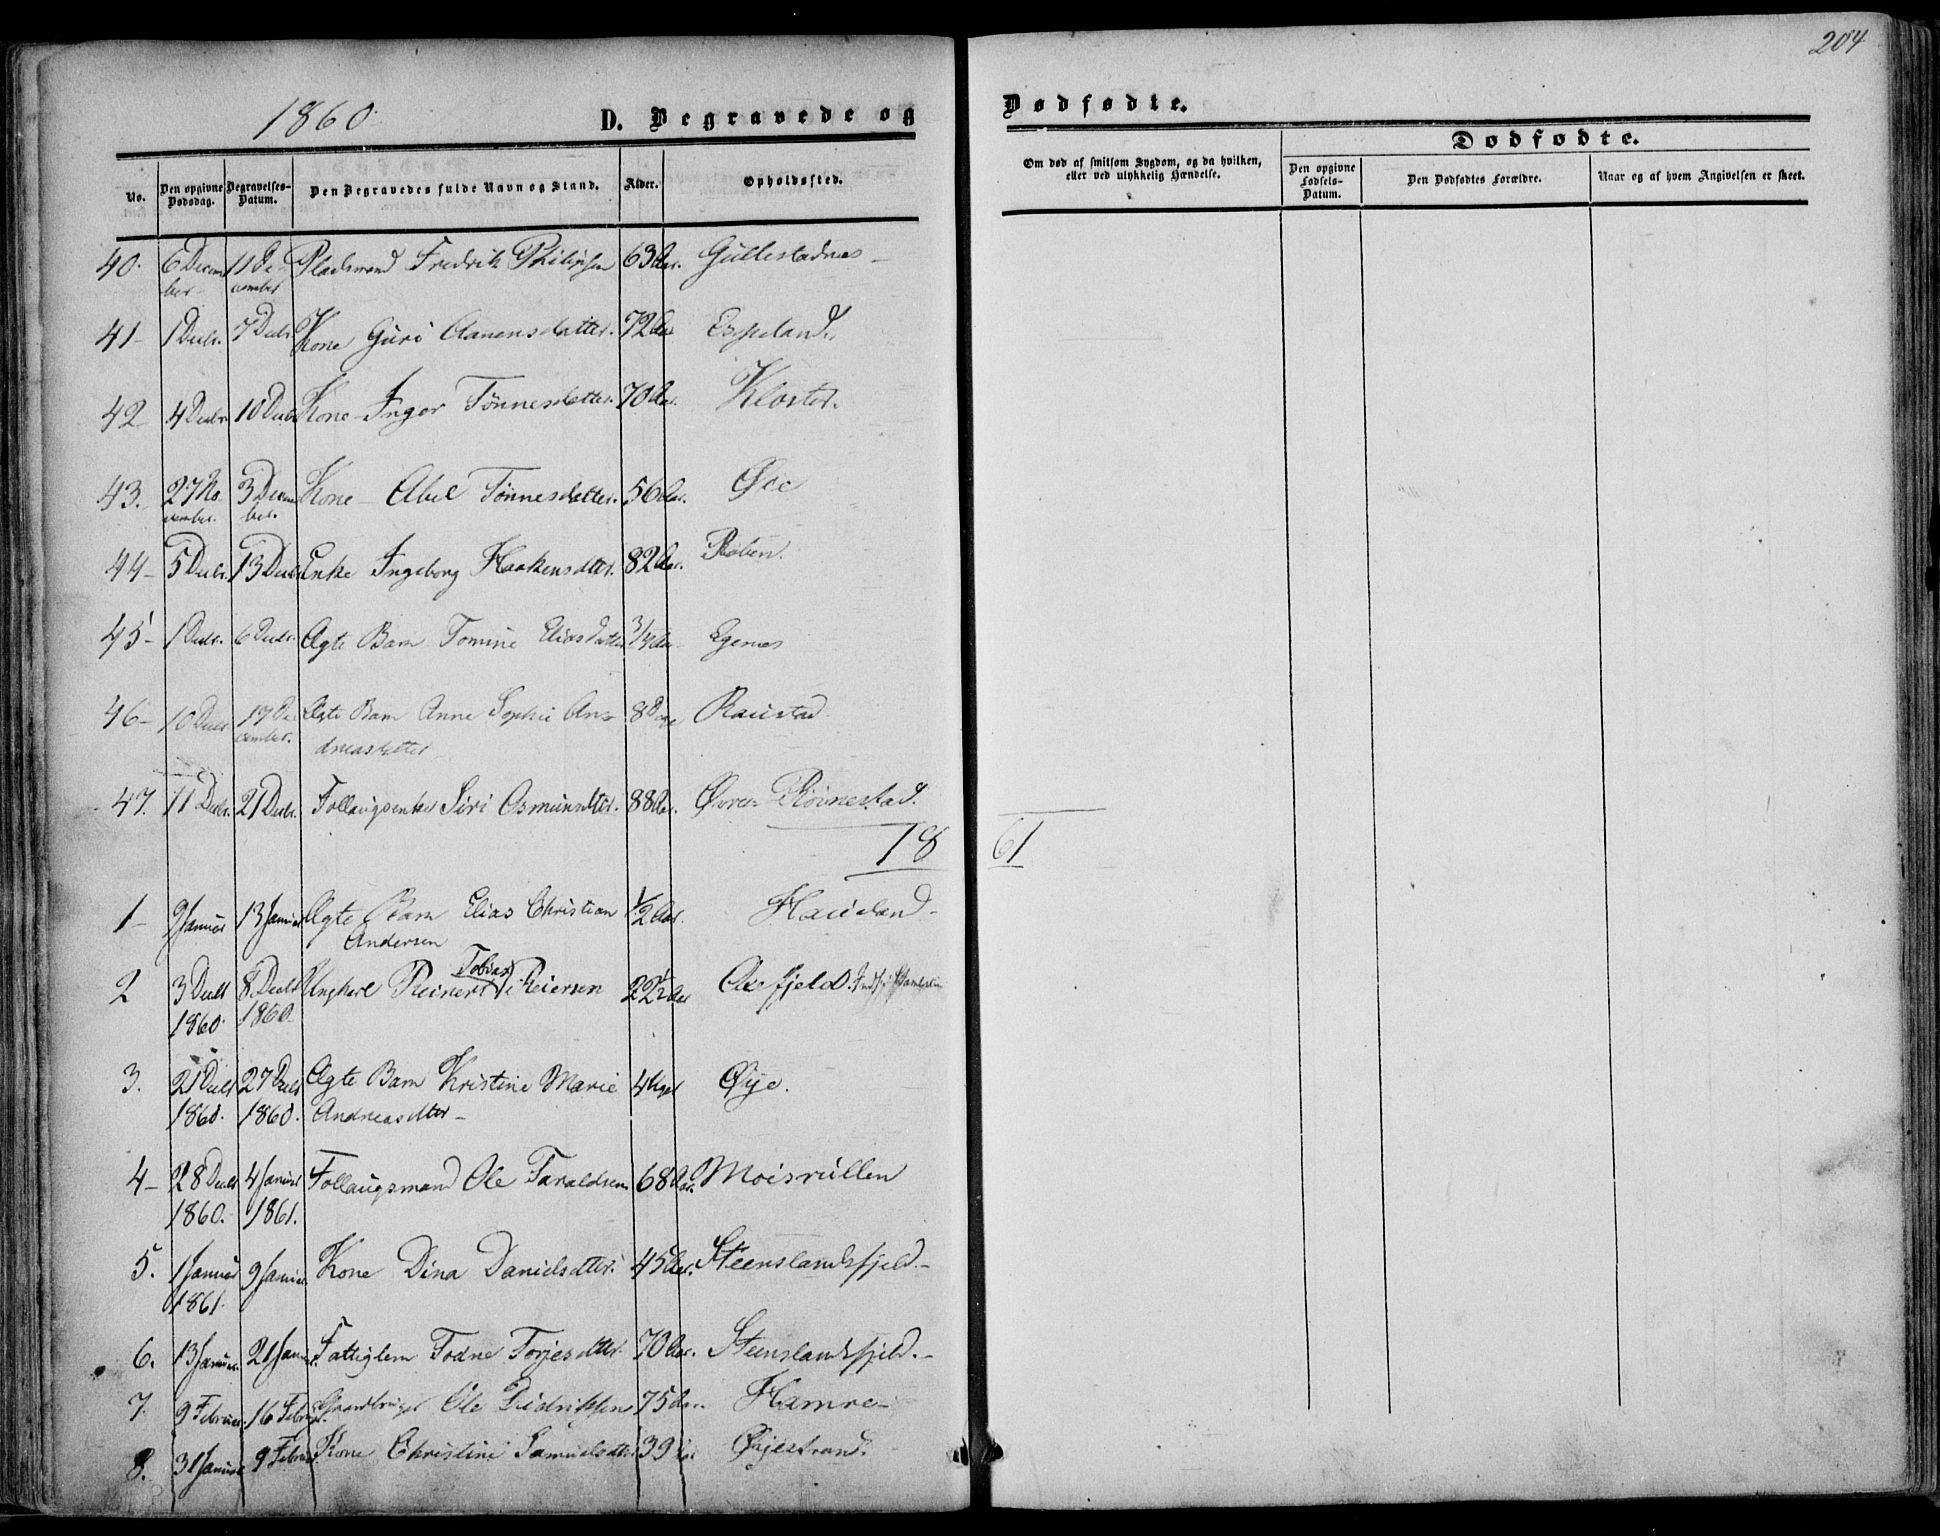 204
1860
D. Begravede og Dødfødte.
No.
Den opgivne Dødsdag.
Begravelses-Datum.
Den Begravedes fulde Navn og Stand.
Alder.
Opholdssted.
Om død af smitsom Sygdom, og da hvilken, eller ved ulykkelig Hændelse.
Dødfødte.
Den opgivne Fødsels-Datum.
Den Dødfødtes Forældre.
Naar og af hvem Angivelsen er skeet.
40. 6 Decem 11 De- Pladsmand Fredrik Philipsen 63 Aar. Gullestadnes -
ber- cember
41- 1 Decbr. 7 Decbr. Kone Guri Aanensdatter. 72 Aar Espeland.
42- 4 Decbr 10 Decbr Kone Inger Tønnesdatter. 70 Aar. Kloster.
43. 27 No 3 Decem Kone - Abel Tønnesdatter. 56 Aar. Øie
vember. ber.
44- 5 Decbr. 13 Decbr. Enke Ingeborg Haakensdtter. 82 Aar.
45- 1 Decbr. 6 Decbr. Ægte Barn Tomine Eliasdatter 3/4 Aar Egenes
46- 10 Decbr 17 De Ægte Barn Anne Sophie An= 8 Dage Raustad
cember. dreasdatter
47. 11 Decbr. 21 Decbr. Follaugsenke Siri Osmundsdtter. 88 Aar. Øvre Røinestad.
18 61
1- 9 Januar 13 Januar Ægte Barn Elias Christian 1/2 Aar. Haueland -
Andersen
2 3 Decbr 8 Decbr Ungkarl Reinert Tobias Reiersen 22 1/2 Aar
1860. 1860.
3. 21 Decbr 27 Decbr Ægte Barn Kristine Marie 4 Uger Øye.
1860. 1860. Andreasdtter -
4- 28 Decbr 4 Januar Follaugsmand Ole Taraldsen 68 Aar. Moisrullen
1860. 1861.
5. 1 Januar 9 Januar Kone Dina Danielsdtter. 45 Aar. Steenslandsfjeld. -
1861.
6. 13 Januar. 21 Januar. Fattiglem Todne Torjesdtter. 70 Aar. Steenslandsfjeld. -
7. 9 Februar. 16 Februar. Gaardbruger Ole Didriksen 75 Aar. Hamre -
8. 31 Januar 9 Februar Kone Christine Samuelsdtter 39 Aar Øyestrand.